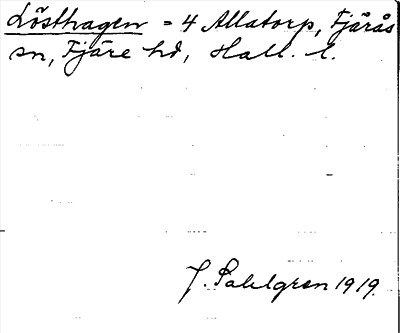 Lösthagen = 4 Allatorp, Fjärås
sn, Fjäre hd, Hall. l.
J. Sahlgren 1919.